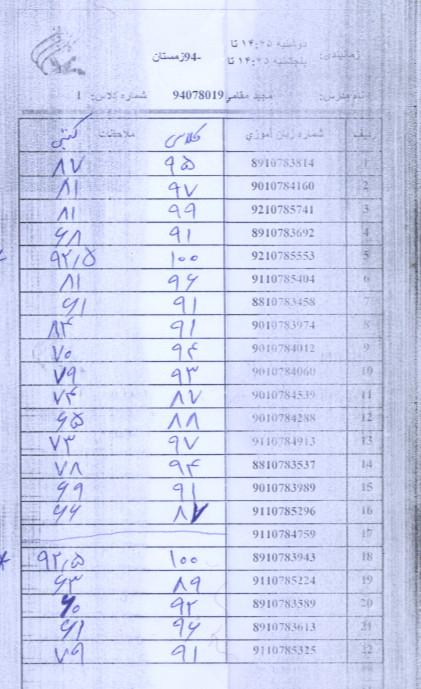 زمانبندی: دوشنبه ۱۴:۴۵ تا
پنجشنبه ۱۴:۴۵ تا -94زمستان
نام مدرس: مجید مقامی 94078019 شماره کلاس: 1
ردیف شماره زبان آموزی کلاسی ملاحظات کتبی
1 8910783814 ۹۵ ۸۷
2 9010784160 ۹۷ ۸۱
3 9210785741 ۹۹ ۸۱
4 8910783692 ۹۱ ۶۸
5 9210785553 ۱۰۰ ۹۲,۵ *
6 9110785404 ۹۶ ۸۱
7 8810783458 ۹۱ ۶۱
8 9010783974 ۹۱ ۸۴
9 9010784012 ۹۴ ۷۰
10 9010784060 ۹۳ ۷۹
11 9010784539 ۸۷ ۷۴
12 9010784288 ۸۸ ۶۵
13 9110784913 ۹۷ ۷۳
14 8810783537 ۹۴ ۷۸
15 9010783989 ۹۱ ۶۹
16 9110785296 ۸۷ ۶۶
17 9110784759
18 8910783943 ۱۰۰ ۹۲,۵ *
19 9110785224 ۸۹ ۶۳
20 8910783589 ۹۲ ۶۰
21 8910783613 ۹۶ ۶۱
22 9110785325 ۹۱ ۷۹